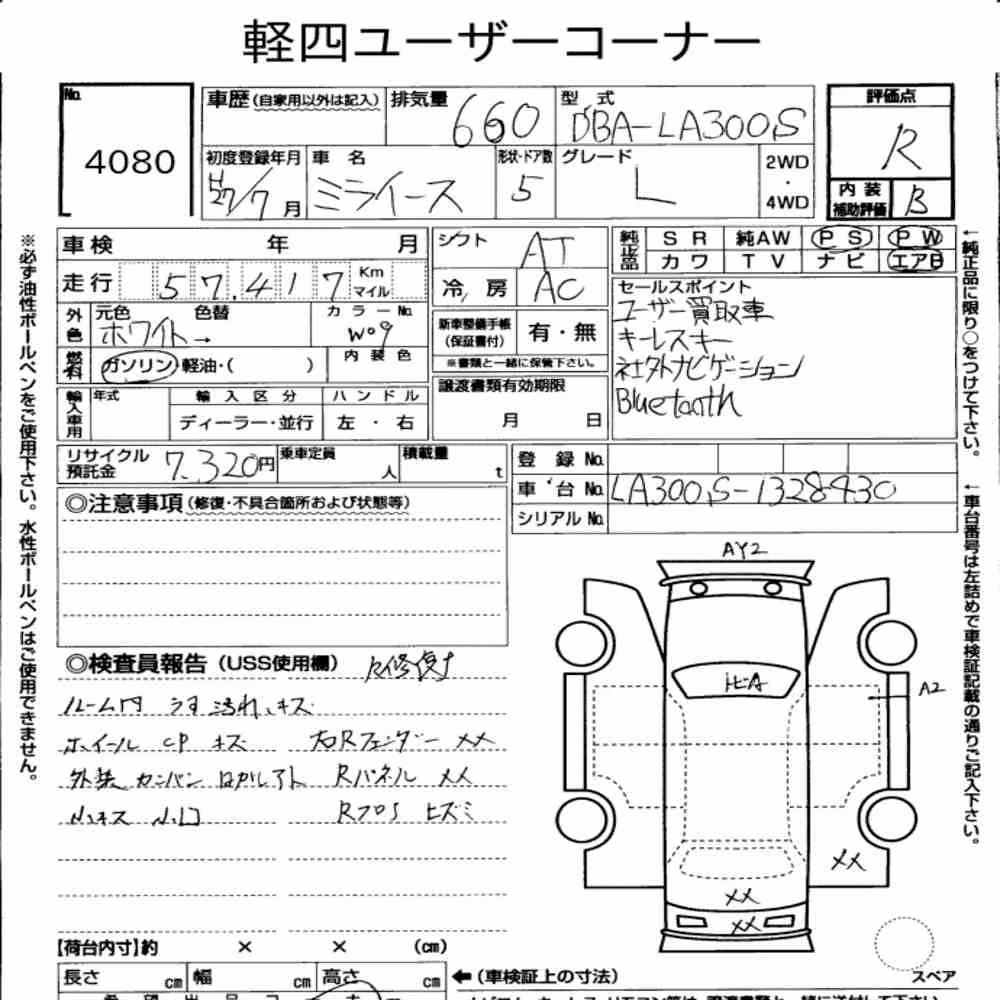 軽四ユーザーコーナー
No. 4080
車歴(自家用以外は記入) 排気量 660 型式 DBA-LA300S
初度登録年月 H27/7月 車名 ミライース 形状・ドア数 5 グレード L 2WD・4WD
評価点 R
内装補助評価 B
車検 年 月
走行 57,417 Km マイル
外色 元色 ホワイト→ 色替 カラーNo. W09
燃料 ガソリン・軽油・( ) 内装色
輸入車用 年式 輸入区分 ディーラー・並行 ハンドル 左・右
シフト AT
冷房 AC
新車整備手帳(保証書付) 有・無
※書類と一緒に保管下さい。
譲渡書類有効期限
月 日
純正品 SR 純AW PS PW
カワ TV ナビ エアB
セールスポイント
ユーザー買取車
キーレスキー
社外ナビゲーション
Bluetooth
リサイクル預託金 7,320円 乗車定員 人 積載量 t
登録No.
車台No. LA300S-1328430
シリアルNo.
◎注意事項(修復・不具合箇所および状態等)
◎検査員報告(USS使用欄) R修復寸
ルーム内 うす汚れ、キズ
ホイール CP キズ 右Rフェンダー XX
外装 カンバン はがしアト Rパネル XX
小キズ 小凹 RフロS ヒズミ
AY2
ヒA
A2
XX
XX
XX
スペア
【荷台内寸】約 × × (cm)
長さ cm 幅 cm 高さ cm ←(車検証上の寸法)
※必ず油性ボールペンをご使用下さい。水性ボールペンはご使用できません。
←純正品に限り○をつけて下さい。
←車台番号は左詰めで車検証記載の通りご記入下さい。